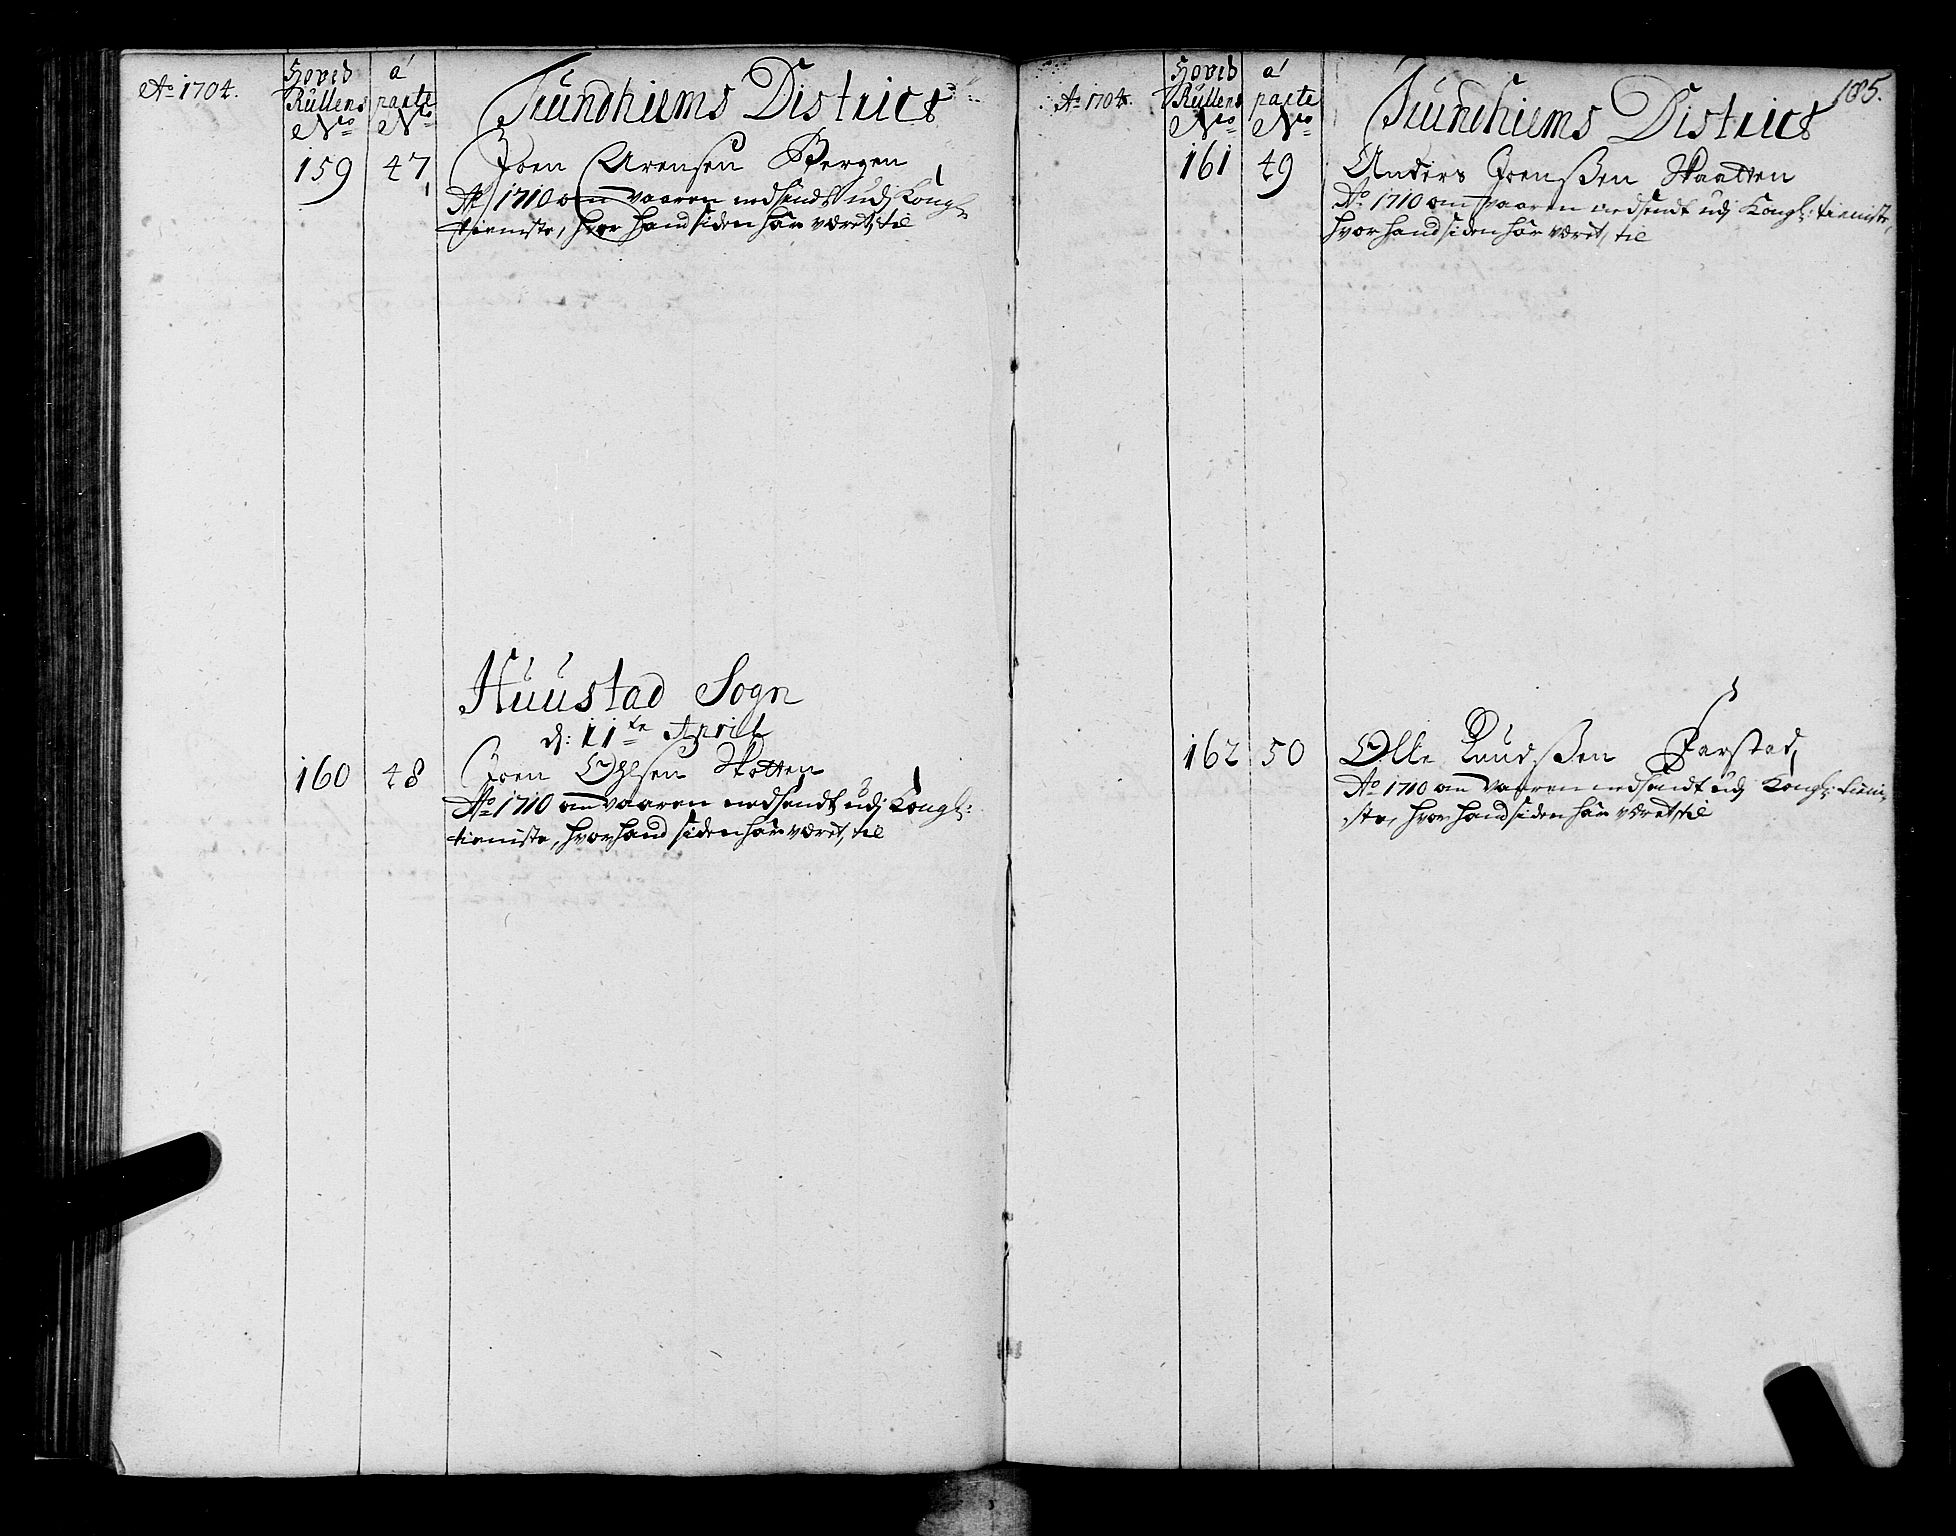 Ao 1704.
Hoved
Rullens
No
a
parte
No
Trundhiems District
159 47 Joen Arensen Bergen
Ao 1710 om vaaren nedsendt udj Kongl:
tieniste, hvor hand siden har været, til
Huustad Sogn
d: 11te Aprill
160 48 Joen Olsen Skotten
Ao 1710 om vaaren nedsendt udj Kongl:
tieniste, hvor hand siden har været, til
185.
Ao 1704.
Hoved
Rullens
No
a
parte
No
Trundhiems District
161 49 Anders Joenßen Skaatten
Ao 1710 om vaaren nedsendt udj Kongl: tieniste,
hvor hand siden har været, til
162 50 Olle Knudßen Farstad
Ao 1710 om vaaren nedsendt udj Kongl: tieni-
ste, hvor hand siden har været, til